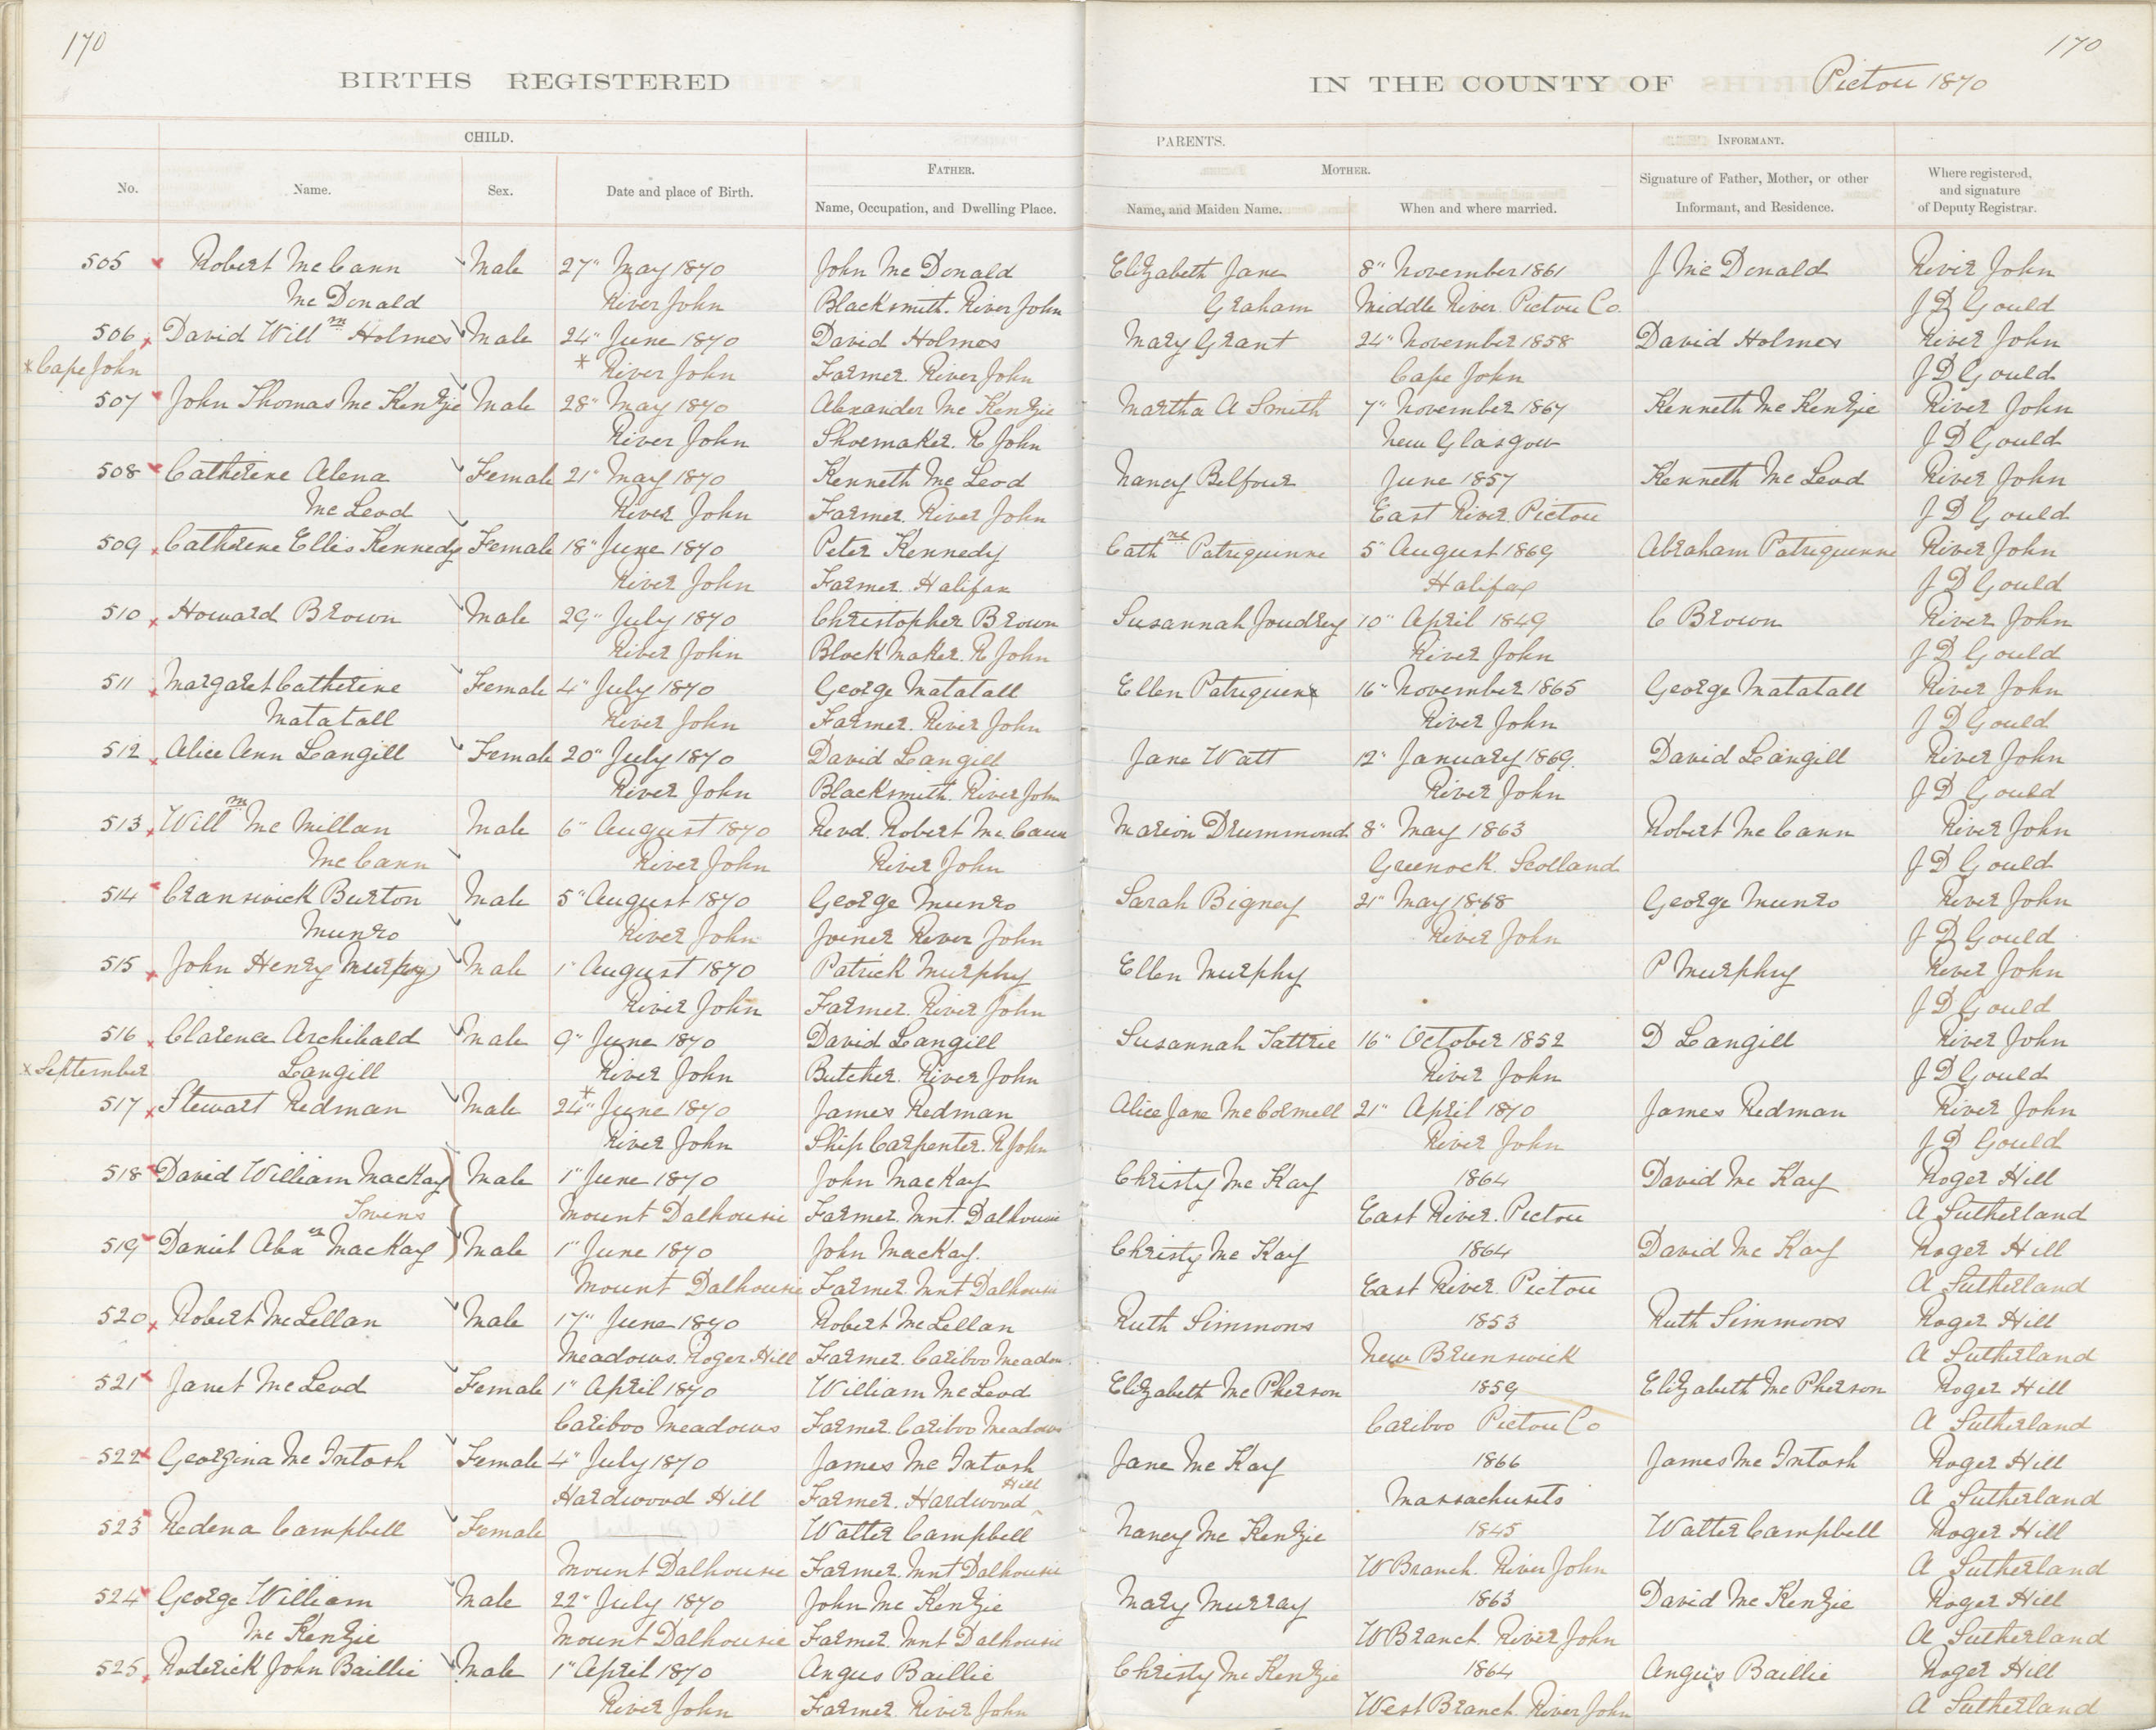 170
170
BIRTHS REGISTERED
IN THE COUNTY OF Pictou 1870
CHILD.
PARENTS.
INFORMANT.
FATHER.
MOTHER.
No.
Name.
Sex.
Date and place of Birth.
Name, Occupation, and Dwelling Place.
Name, and Maiden Name.
When and where married.
Signature of Father, Mother, or other
Informant, and Residence.
Where registered,
and signature
of Deputy Registrar.
505 Robert McCann Male 27" May 1870 John McDonald Elizabeth Jane 8" November 1861 J McDonald River John
McDonald River John Blacksmith. River John Graham Middle River. Pictou Co. J D Gould
506 David Willm Holmes Male 24" June 1870 David Holmes Mary Grant 24" November 1858 David Holmes River John
*Cape John * River John Farmer. River John Cape John J D Gould
507 John Thomas McKenzie Male 28" May 1870 Alexander McKenzie Martha A Smith 7" November 1867 Kenneth McKenzie River John
River John Shoemaker. R John New Glasgow J D Gould
508 Catherine Alena Female 21" May 1870 Kenneth McLeod Nancy Belfour June 1857 Kenneth McLeod River John
McLeod River John Farmer. River John East River. Pictou J D Gould
509 Catherine Ellis Kennedy Female 18" June 1870 Peter Kennedy Cathne Patriquinne 5" August 1869 Abraham Patriquinne River John
River John Farmer. Halifax Halifax J D Gould
510 Howard Brown Male 29" July 1870 Christopher Brown Susannah Joudrey 10" April 1849 C Brown River John
River John Block Maker. R John River John J D Gould
511 Margaret Catherine Female 4" July 1870 George Matatall Ellen Patriquin 16" November 1865 George Matatall River John
Matatall River John Farmer. River John River John J D Gould
512 Alice Ann Langill Female 20" July 1870 David Langill Jane Watt 12" January 1869. David Langill River John
River John Blacksmith. River John River John J D Gould
513 Willm McMillan Male 6" August 1870 Revd. Robert McCann Marion Drummond 8" May 1863 Robert McCann River John
McCann River John River John Greenock. Scotland J D Gould
514 Cranswick Burton Male 5" August 1870 George Munro Sarah Bigney 21" May 1868 George Munro River John
Munro River John Joiner River John River John J D Gould
515 John Henry Murphy Male 1" August 1870 Patrick Murphy Ellen Murphy P Murphy River John
River John Farmer. River John J D Gould
516 Clarence Archibald Male 9" June 1870 David Langill Susannah Tattrie 16" October 1852 D Langill River John
x September Langill River John Butcher. River John River John J D Gould
517 Stewart Redman Male 24"x June 1870 James Redman Alice Jane McCormell 21" April 1870 James Redman River John
River John Ship Carpenter. R John River John J D Gould
518 David William MacKay Male 1" June 1870 John MacKay Christy McKay 1864 David McKay Roger Hill
Twins Mount Dalhousie Farmer. Mnt. Dalhousie East River. Pictou A Sutherland
519 Daniel Alexr MacKay Male 1" June 1870 John MacKay. Christy McKay 1864 David McKay Roger Hill
Mount Dalhousie Farmer. Mnt Dalhousie East River. Pictou A Sutherland
520 Robert McLellan Male 17" June 1870 Robert McLellan Ruth Simmons 1853 Ruth Simmons Roger Hill
Meadows. Roger Hill Farmer. Cariboo Meadow. New Brunswick A Sutherland
521 Janet McLeod Female 1" April 1870 William McLeod Elizabeth McPherson 1859 Elizabeth McPherson Roger Hill
Cariboo Meadows Farmer. Cariboo Meadows Cariboo Pictou Co A Sutherland
522 Georgina McIntosh Female 4" July 1870 James McIntosh Jane McKay 1866 James McIntosh Roger Hill
Hardwood Hill Farmer. Hardwood Hill Massachusets A Sutherland
523 Redena Campbell Female Walter Campbell Nancy McKenzie 1845 Walter Campbell Roger Hill
Mount Dalhousie Farmer. Mnt Dalhousie W Branch. River John A Sutherland
524 George William Male 22" July 1870 John McKenzie Mary Murray 1863 David McKenzie Roger Hill
McKenzie Mount Dalhousie Farmer. Mnt Dalhousie W Branch. River John A Sutherland
525 Roderick John Baillie Male 1" April 1870 Angus Baillie Christy McKenzie 1864 Angus Baillie Roger Hill
River John Farmer. River John West Branch. River John A Sutherland